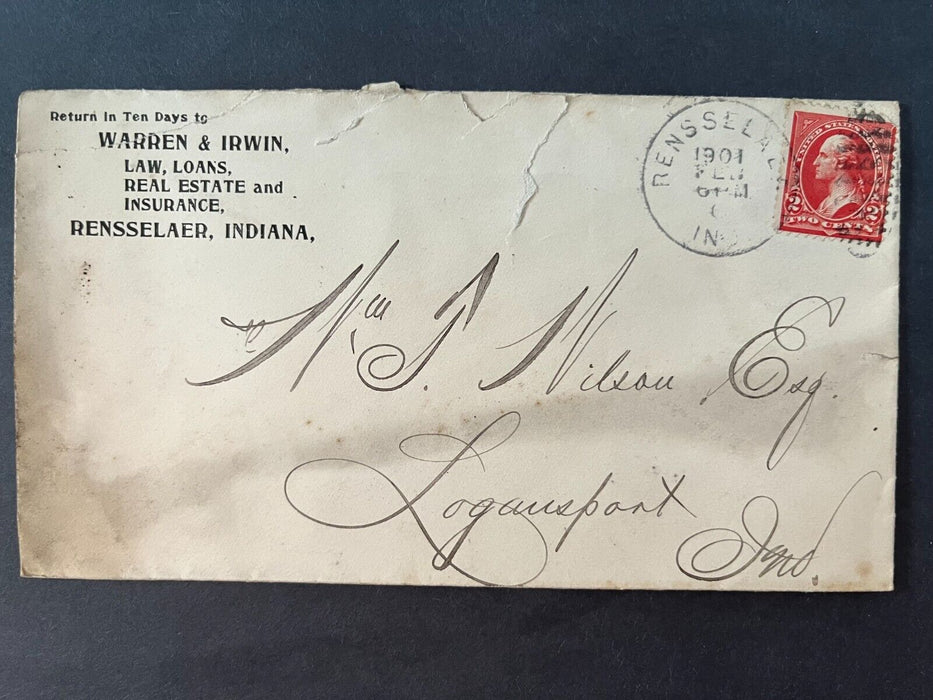 Return In Ten Days to
WARREN & IRWIN,
LAW, LOANS,
REAL ESTATE and
INSURANCE,
RENSSELAER, INDIANA,
RENSSELAE
1901
FEB
6 PM
IN
UNITED STATES
2 2
TWO CENTS
Wm T. Wilson Esq.
Logansport
Ind.